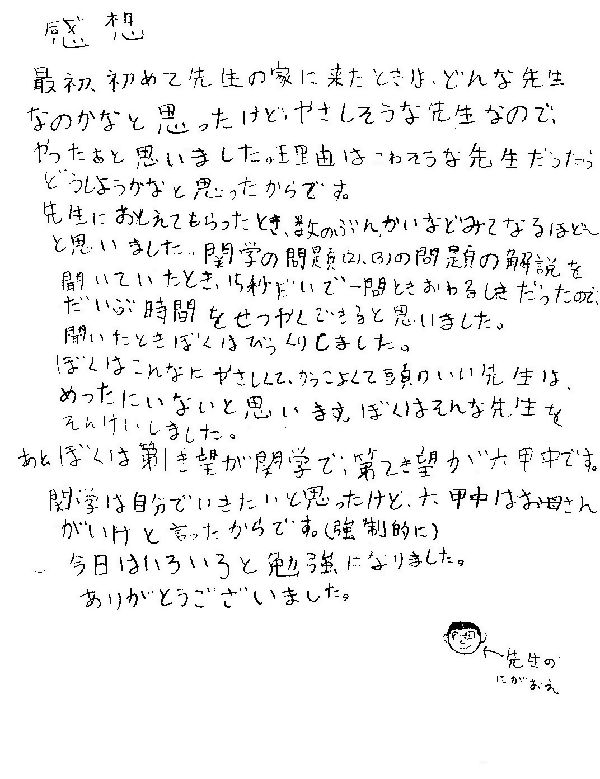 感想
最初、初めて先生の家に来たときは、どんな先生
なのかなと思ったけど、やさしそうな先生なので、
やったぁと思いました。理由はこわそうな先生だったら
どうしようかなと思ったからです。
先生におしえてもらったとき、数のぶんかいなどみてなるほど
と思いました。関学の問題(2)、(3)の問題の解説を
聞いていたとき、15秒だいで一問ときおわるしきだったので、
だいぶ時間をせつやくできると思いました。
聞いたときぼくはびっくりしました。
ぼくはこんなにやさしくて、かっこよくて頭のいい先生は、
めったにいないと思います。ぼくはそんな先生を
そんけいしました。
あとぼくは第1き望が関学で、第2き望が六甲中です。
関学は自分でいきたいと思ったけど、六甲中はお母さん
がいけと言ったからです。(強制的に)
今日はいろいろと勉強になりました。
ありがとうございました。
←先生の
にがおえ